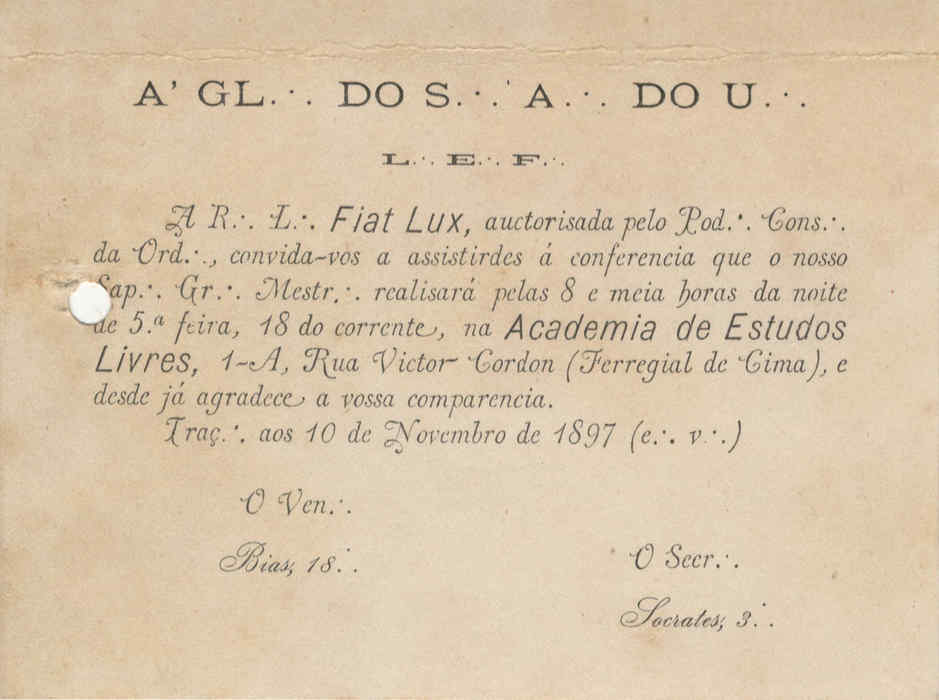 A' GL.·. DO S.·. A.·. DO U.·.
L.·. E.·. F.·.
A R.·. L.·. Fiat Lux, auctorisada pelo Pod.·. Cons.·.
da Ord.·., convida-vos a assistirdes á conferencia que o nosso
Sap.·. Gr.·. Mestr.·. realisará pelas 8 e meia horas da noite
de 5.ª feira, 18 do corrente, na Academia de Estudos
Livres, 1-A, Rua Victor Cordon (Ferregial de Cima), e
desde já agradece a vossa comparencia.
Traç.·. aos 10 de Novembro de 1897 (e.·. v.·.)
O Ven.·.
Bias, 18.·.
O Secr.·.
Socrates, 3.·.